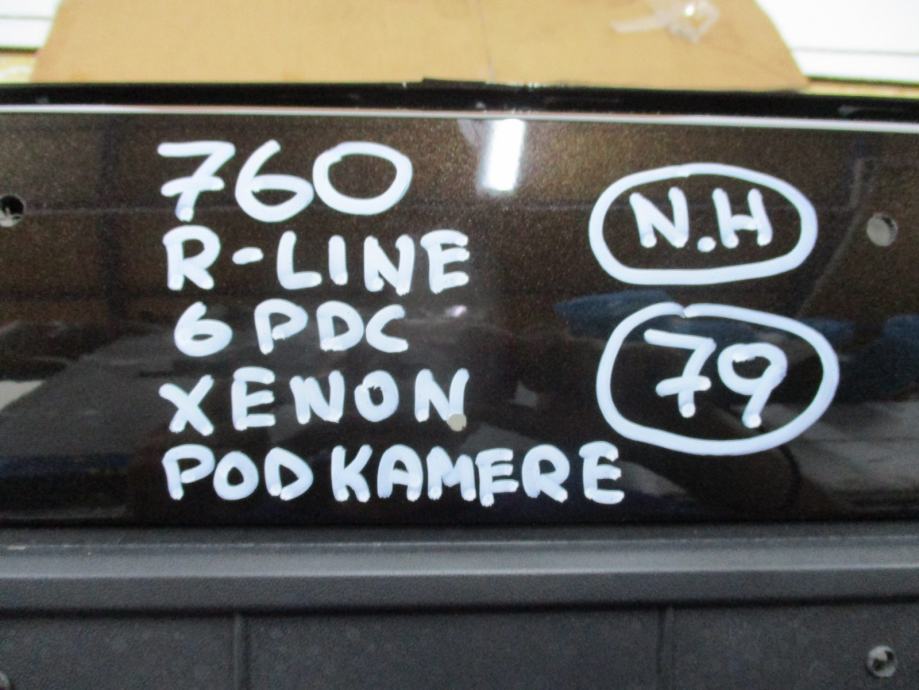 760
R-LINE
6 PDC
XENON
POD KAMERE
N.H
79